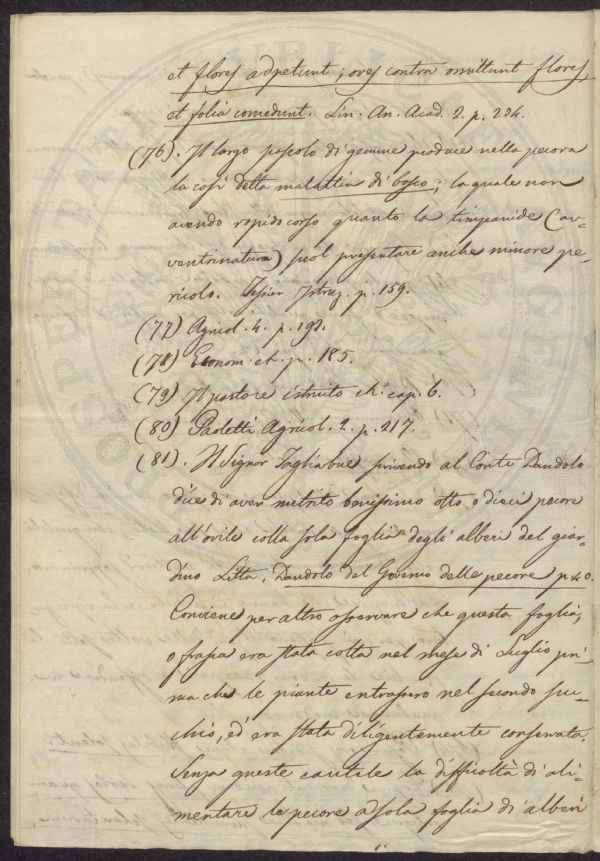 et flores adpetunt; oves contra omittunt flores,
et folia comedunt. Lin. An. Acad. 2. p. 204.
(76). Il largo pascolo di gemme produce nella pecora
la così detta malattia di bosco; la quale non
avendo rapido corso quanto la timpanide (av-
ventrinatura) suol presentare anche minore pe-
ricolo. Tessier Istruz. p. 159.
(77) Agricol. 4. p. 192.
(78) Econom. et. p. 185.
(79) Il pastore istruito et. cap. 6.
(80) Paoletti Agricol. 2. p. 217.
(81). Il Signor Tagliabue scrivendo al Conte Dandolo
dice di aver nutrito benissimo otto o dieci pecore
all'ovile colla sola foglia degli alberi del giar-
dino Litta. Dandolo del Governo delle pecore p. 40.
Conviene per altro osservare che questa foglia,
o frasca era stata colta nel mese di Luglio pri-
ma che le piante entrassero nel secondo suc-
chio, ed era stata diligentemente conservata.
Senza queste cautele la difficoltà di ali-
mentare le pecore a sola foglia di alberi